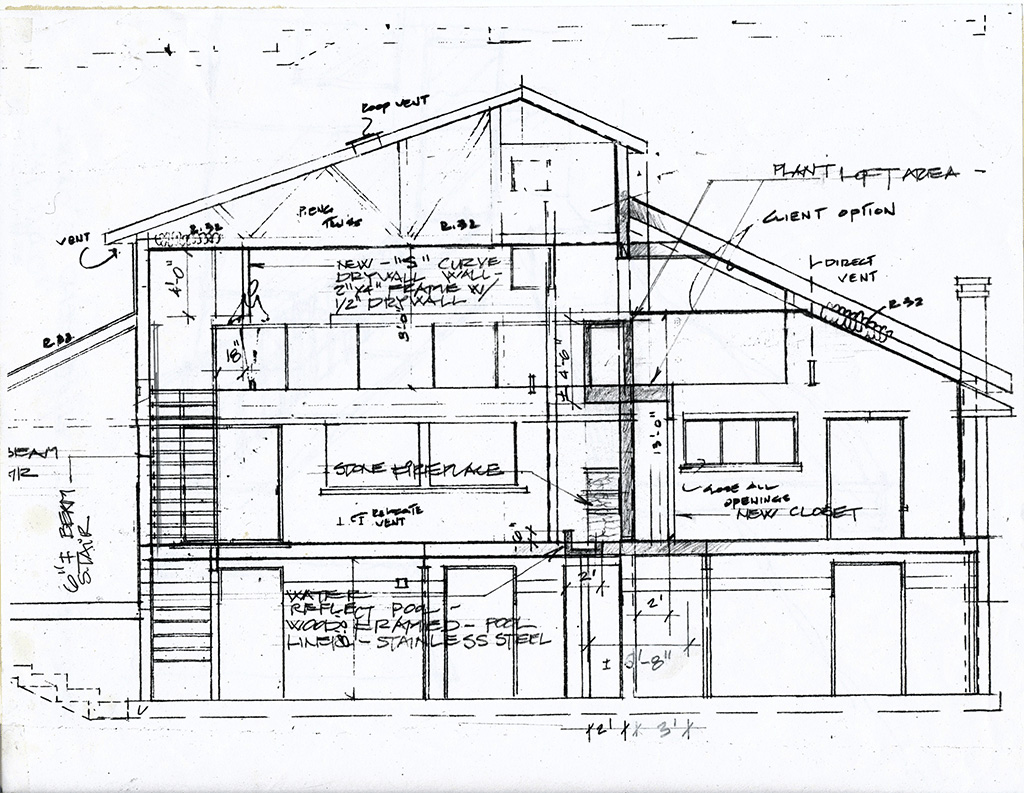 ROOF VENT
PLANT LOFT AREA -
CLIENT OPTION
VENT
R.32
P.ENG
TRUSS
R.32
DIRECT
VENT
R.32
4'-0"
NEW - "S" CURVE
DRYWALL WALL -
2"x4" FRAME W/
1/2" DRYWALL
R.32
18"
± 4'-6"
13'-0"
STONE FIREPLACE
RELOCATE
VENT
CLOSE ALL
OPENINGS
NEW CLOSET
BEAM
6" I BEAM
STAIR
6"
WATER
REFLECT POOL -
WOOD FRAMED - POOL
LINER - STAINLESS STEEL
2'
2'
2'
3'